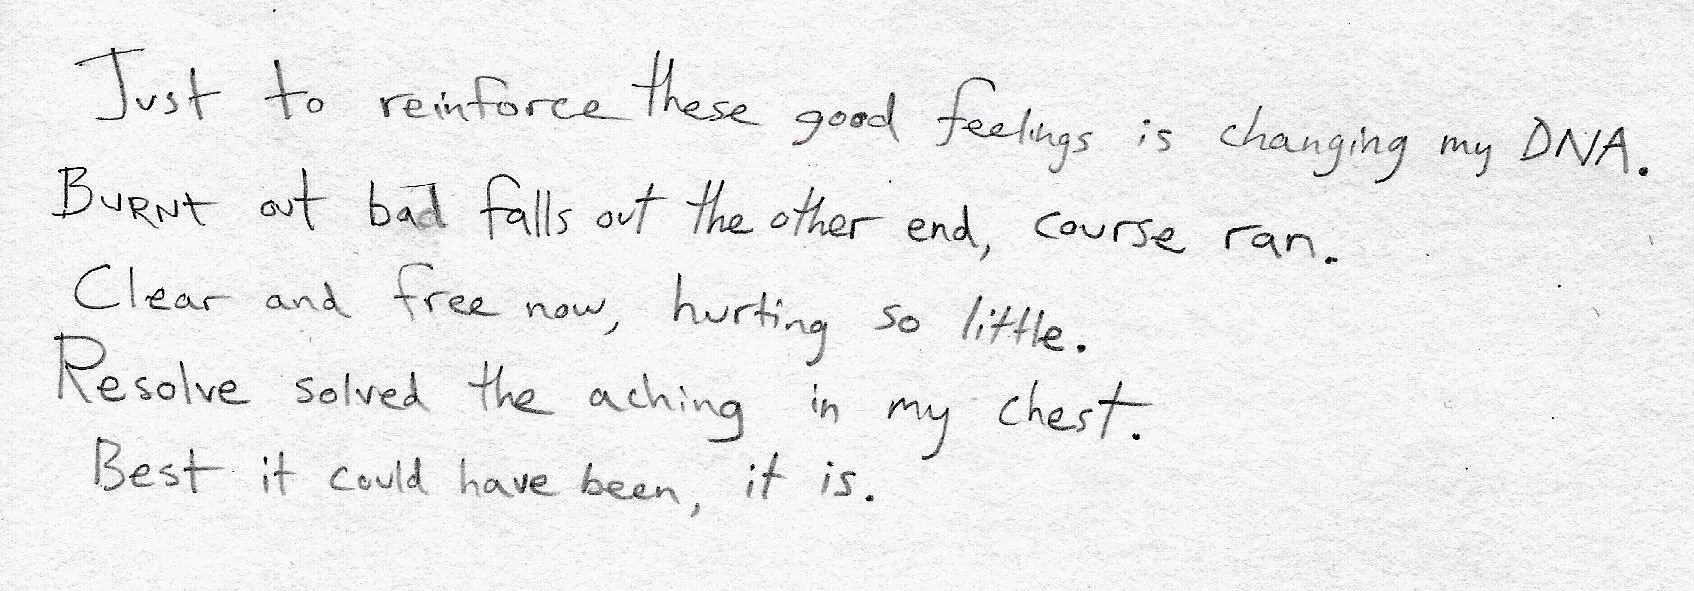 Just to reinforce these good feelings is changing my DNA.
Burnt out bad falls out the other end, course ran.
Clear and free now, hurting so little.
Resolve solved the aching in my chest.
Best it could have been, it is.